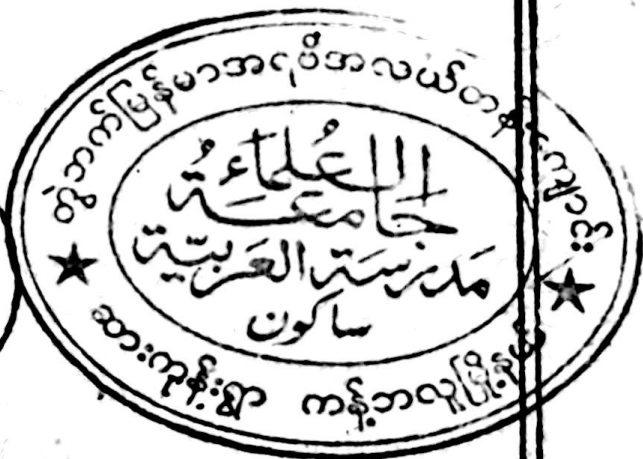 တွဲဘက်မြန်မာအရဗီအလယ်တန်းကျောင်း
جَامِعَةُ العُلَمَاءِ
مَدرَسَة العَرَبِيَّة
ساكون
ဆားကုန်းရွာ ကန့်ဘလူမြို့နယ်